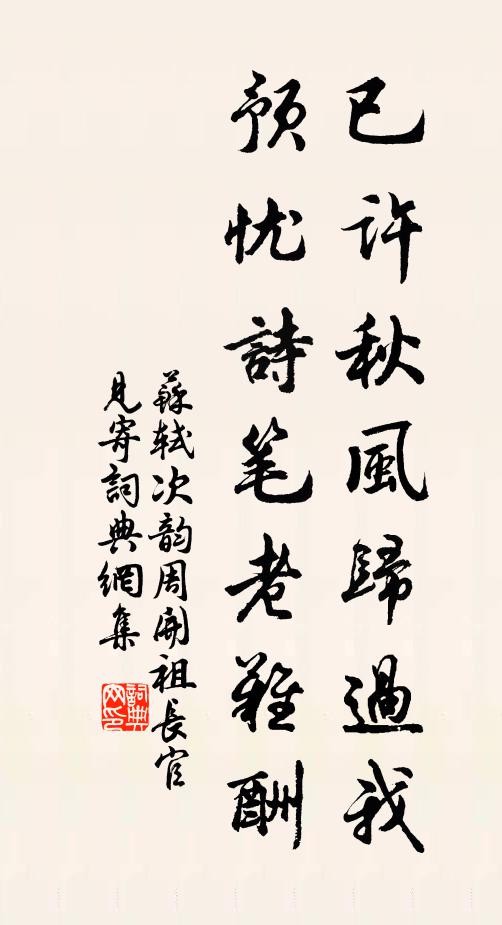 已许秋風歸過我
预忧詩笔老難酬
蘇轼次韵周開祖長官
見寄詞典網集
詞典网印